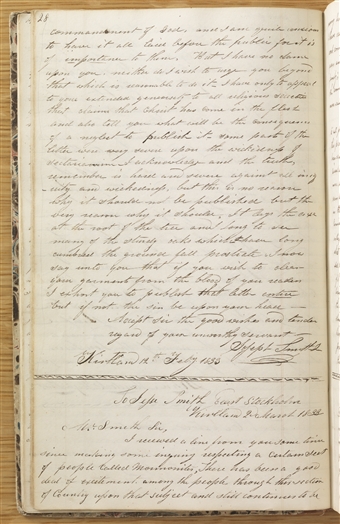 28
commandment of God, and I am quite anxious
to have it all laid before the public for it is
of importance to them, But I have no claim
upon you neither do I wish to urge you beyond
that which is reasonable to do it. I have only to appeal
to your extended generosity to all religious societies
that claim that Christ has come in the flesh
and also tell you what will be the consequence
of a neglect to publish it some parts of the
letter were very severe upon the wickedness of
sectarianism I acknowledge and the truth,
remember is hard and severe against all iniq
uity and wickedness, but this is no reason
why it should not be published but the
very reason why it should. It lays the axe
at the root of the tree and I long to see
many of the sturdy oaks which have long
cumbered the ground fall prostrate. I now
say unto you that if you wish to clear
your garment from the blood of your readers
I exhort you to publish that letter entire
but if not the sin be upon your head
Accept Sir the good wishes and tender
regard of your unworthy servant
Joseph Smith Jr
Kirtland 12th Feby 1833
To Jesse Smith East Stockholm
Kirtland 2 March 1833
Mr Smith Sir,
I received a line from you some time
since making some enquiry respecting a certain sect
of people called Mormonites, There has been a good
deal of excitement among the people through this section
of Country upon that subject and still continues to be